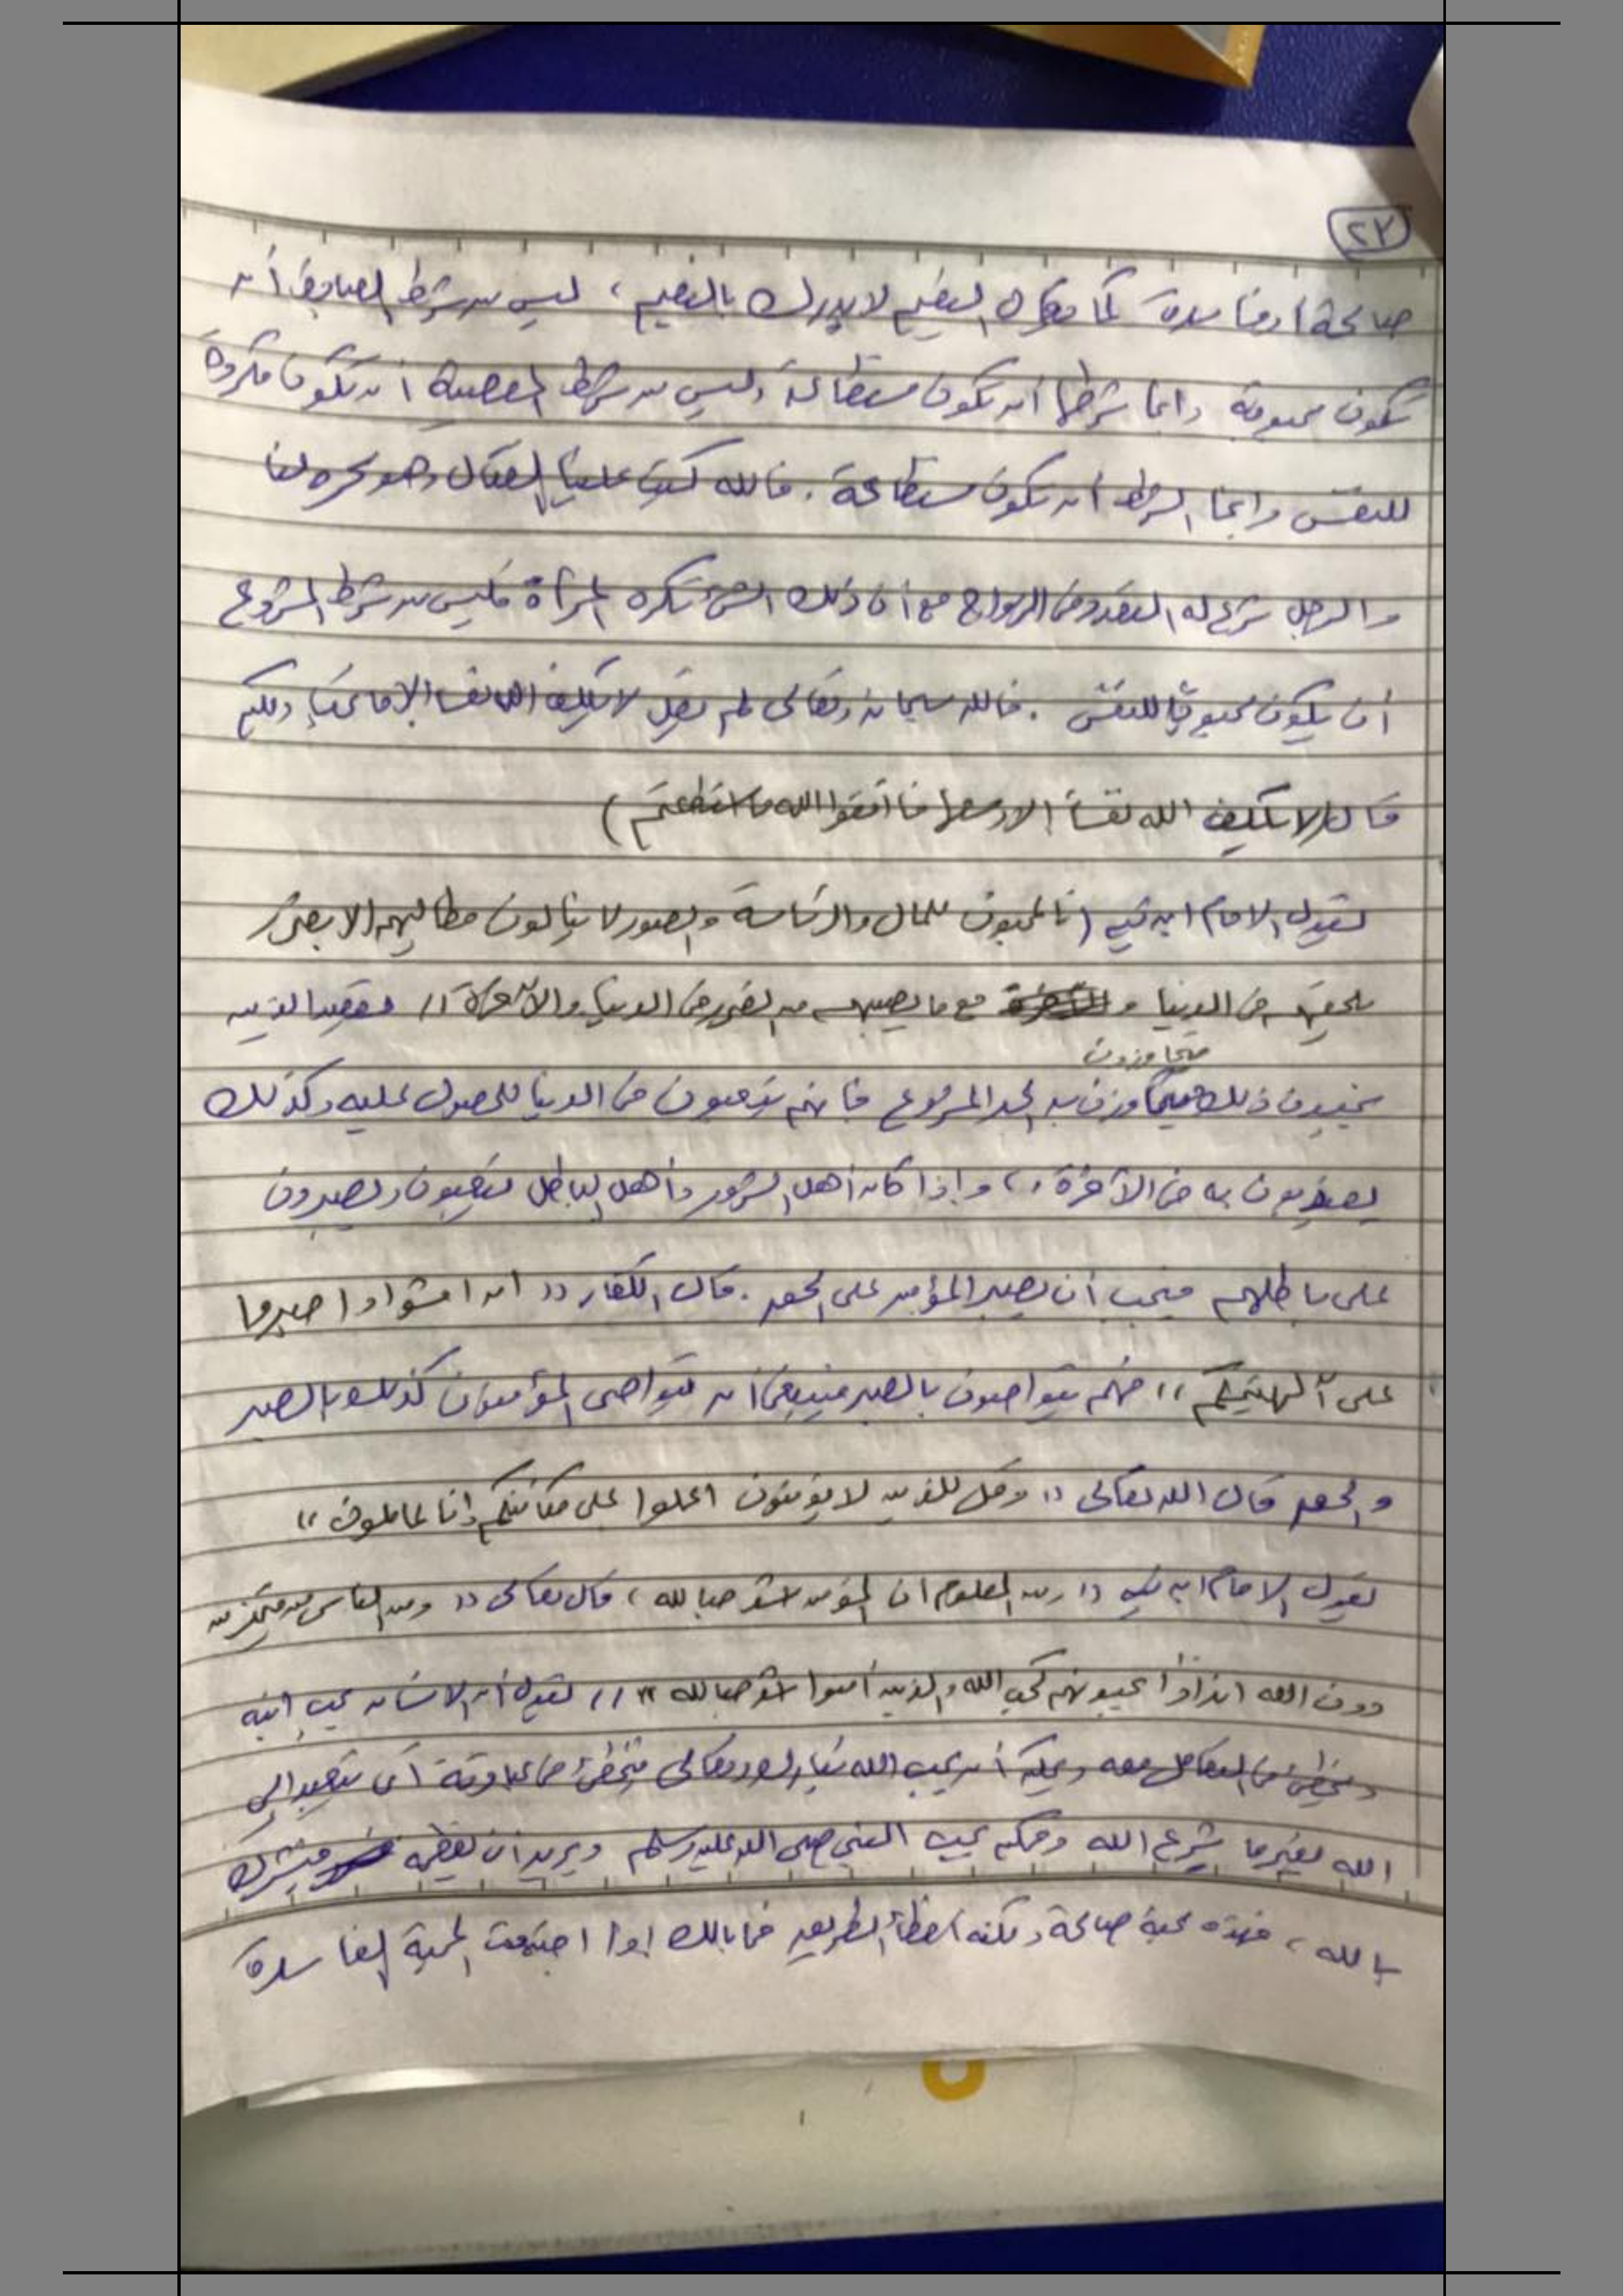 ٢٧
صالحة أو فاسدة كما يقال النعيم لا يدرك بالنعيم ، ليس من شرط أن
تكون محبوبة وانما شرطها أن تكون مستطاعة وليس من شرط المعصية أن تكون مكروهة
للنفس وانما الشرط أن تكون مستطاعة . فالله كتب علينا القتال وهو كره لنا
والرجل شرع له التعدد في الزواج مع أن ذلك الشئ تكره المرأة فليس من شرط المشروع
أن يكون محبوبًا للنفس . فالله سبحانه وتعالى لم يقل لا يكلف الله نفسا إلا ما تحب ولكن
قال (لا يكلف الله نفسا إلا وسعها فاتقوا الله ما استطعتم)
يقول الامام ابن تيميه (فالمحبون للمال والرئاسة والصور لا ينالون مطالبهم إلا بضرر
يلحقهم في الدنيا و مع ما يصيبهم من الضرر في الدنيا والآخرة )) فقصد الذين
متجاوزون
يحبون ذلك متجاوزن به الحد المشروع فانهم يتعبون في الدنيا للحصول عليه وكذلك
يعذبون به في الآخرة ،، واذا كان أهل الشرور وأهل الباطل يتعبون ويصبرون
على باطلهم فيجب أن يصبر المؤمن على الحق . قال الكفار (( ان امشوا واصبروا
على آلهتكم )) فهم يتواصون بالصبر فينبغي أن يتواصى المؤمنون كذلك بالصبر
والحق قال الله تعالى (( وقل للذين لا يؤمنون اعملوا على مكانتكم إنا عاملون ))
يقول الامام ابن تيميه (( ومن المعلوم ان المؤمن اشد حبا لله ، قال تعالى (( ومن الناس من يتخذ من
دون الله اندادًا يحبونهم كحب الله والذين آمنوا اشد حبا لله )) )) نقول أن الانسان يحب ابنه
ويخطئ في التعامل معه ويمكن أن يحب الله تبارك وتعالى فيخطئ في عبادته أي يتعبد إلى
الله بغير ما شرع الله وممكن يحب النبي صلى الله عليه وسلم ويريد ان يعظمه فيشرك
بالله ، فهذه محبة صالحة ولكنه أخطأ الطريق فما بالك اذا اجتمعت المحبة الفاسدة